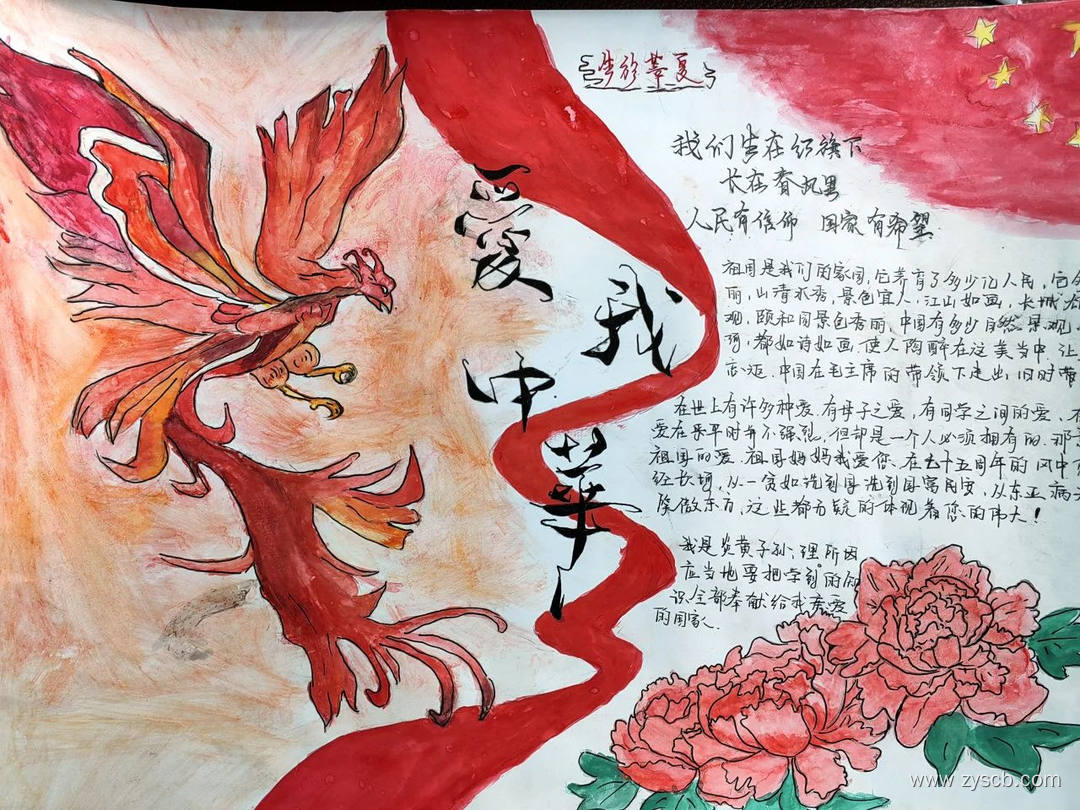 生于華夏
愛
我
中
華
我们生在红旗下
长在春风里
人民有信仰 国家有希望
祖国是我们的家园,它养育了多少亿人民,它
丽,山清水秀,景色宜人,江山如画,长城
观,颐和园景色秀丽,中国有多少自然景观,
河,都如诗如画,使人陶醉在这美当中,让
忘返.中国在毛主席的带领下走出旧时
在世上有许多种爱.有母子之爱,有同学之间的爱,
爱在和平时并不强烈,但却是一个人必须拥有的.那
祖国的爱.祖国妈妈我爱您.在七十五周年的风中
经长河,从一贫如洗到国富民安,从东亚病
笑傲东方,这些都有 的体现着您的伟大!
我是炎黄子孙,理所因
应当地要把学到的知
识全部奉献给我亲爱
的国家.
www.zyscb.com